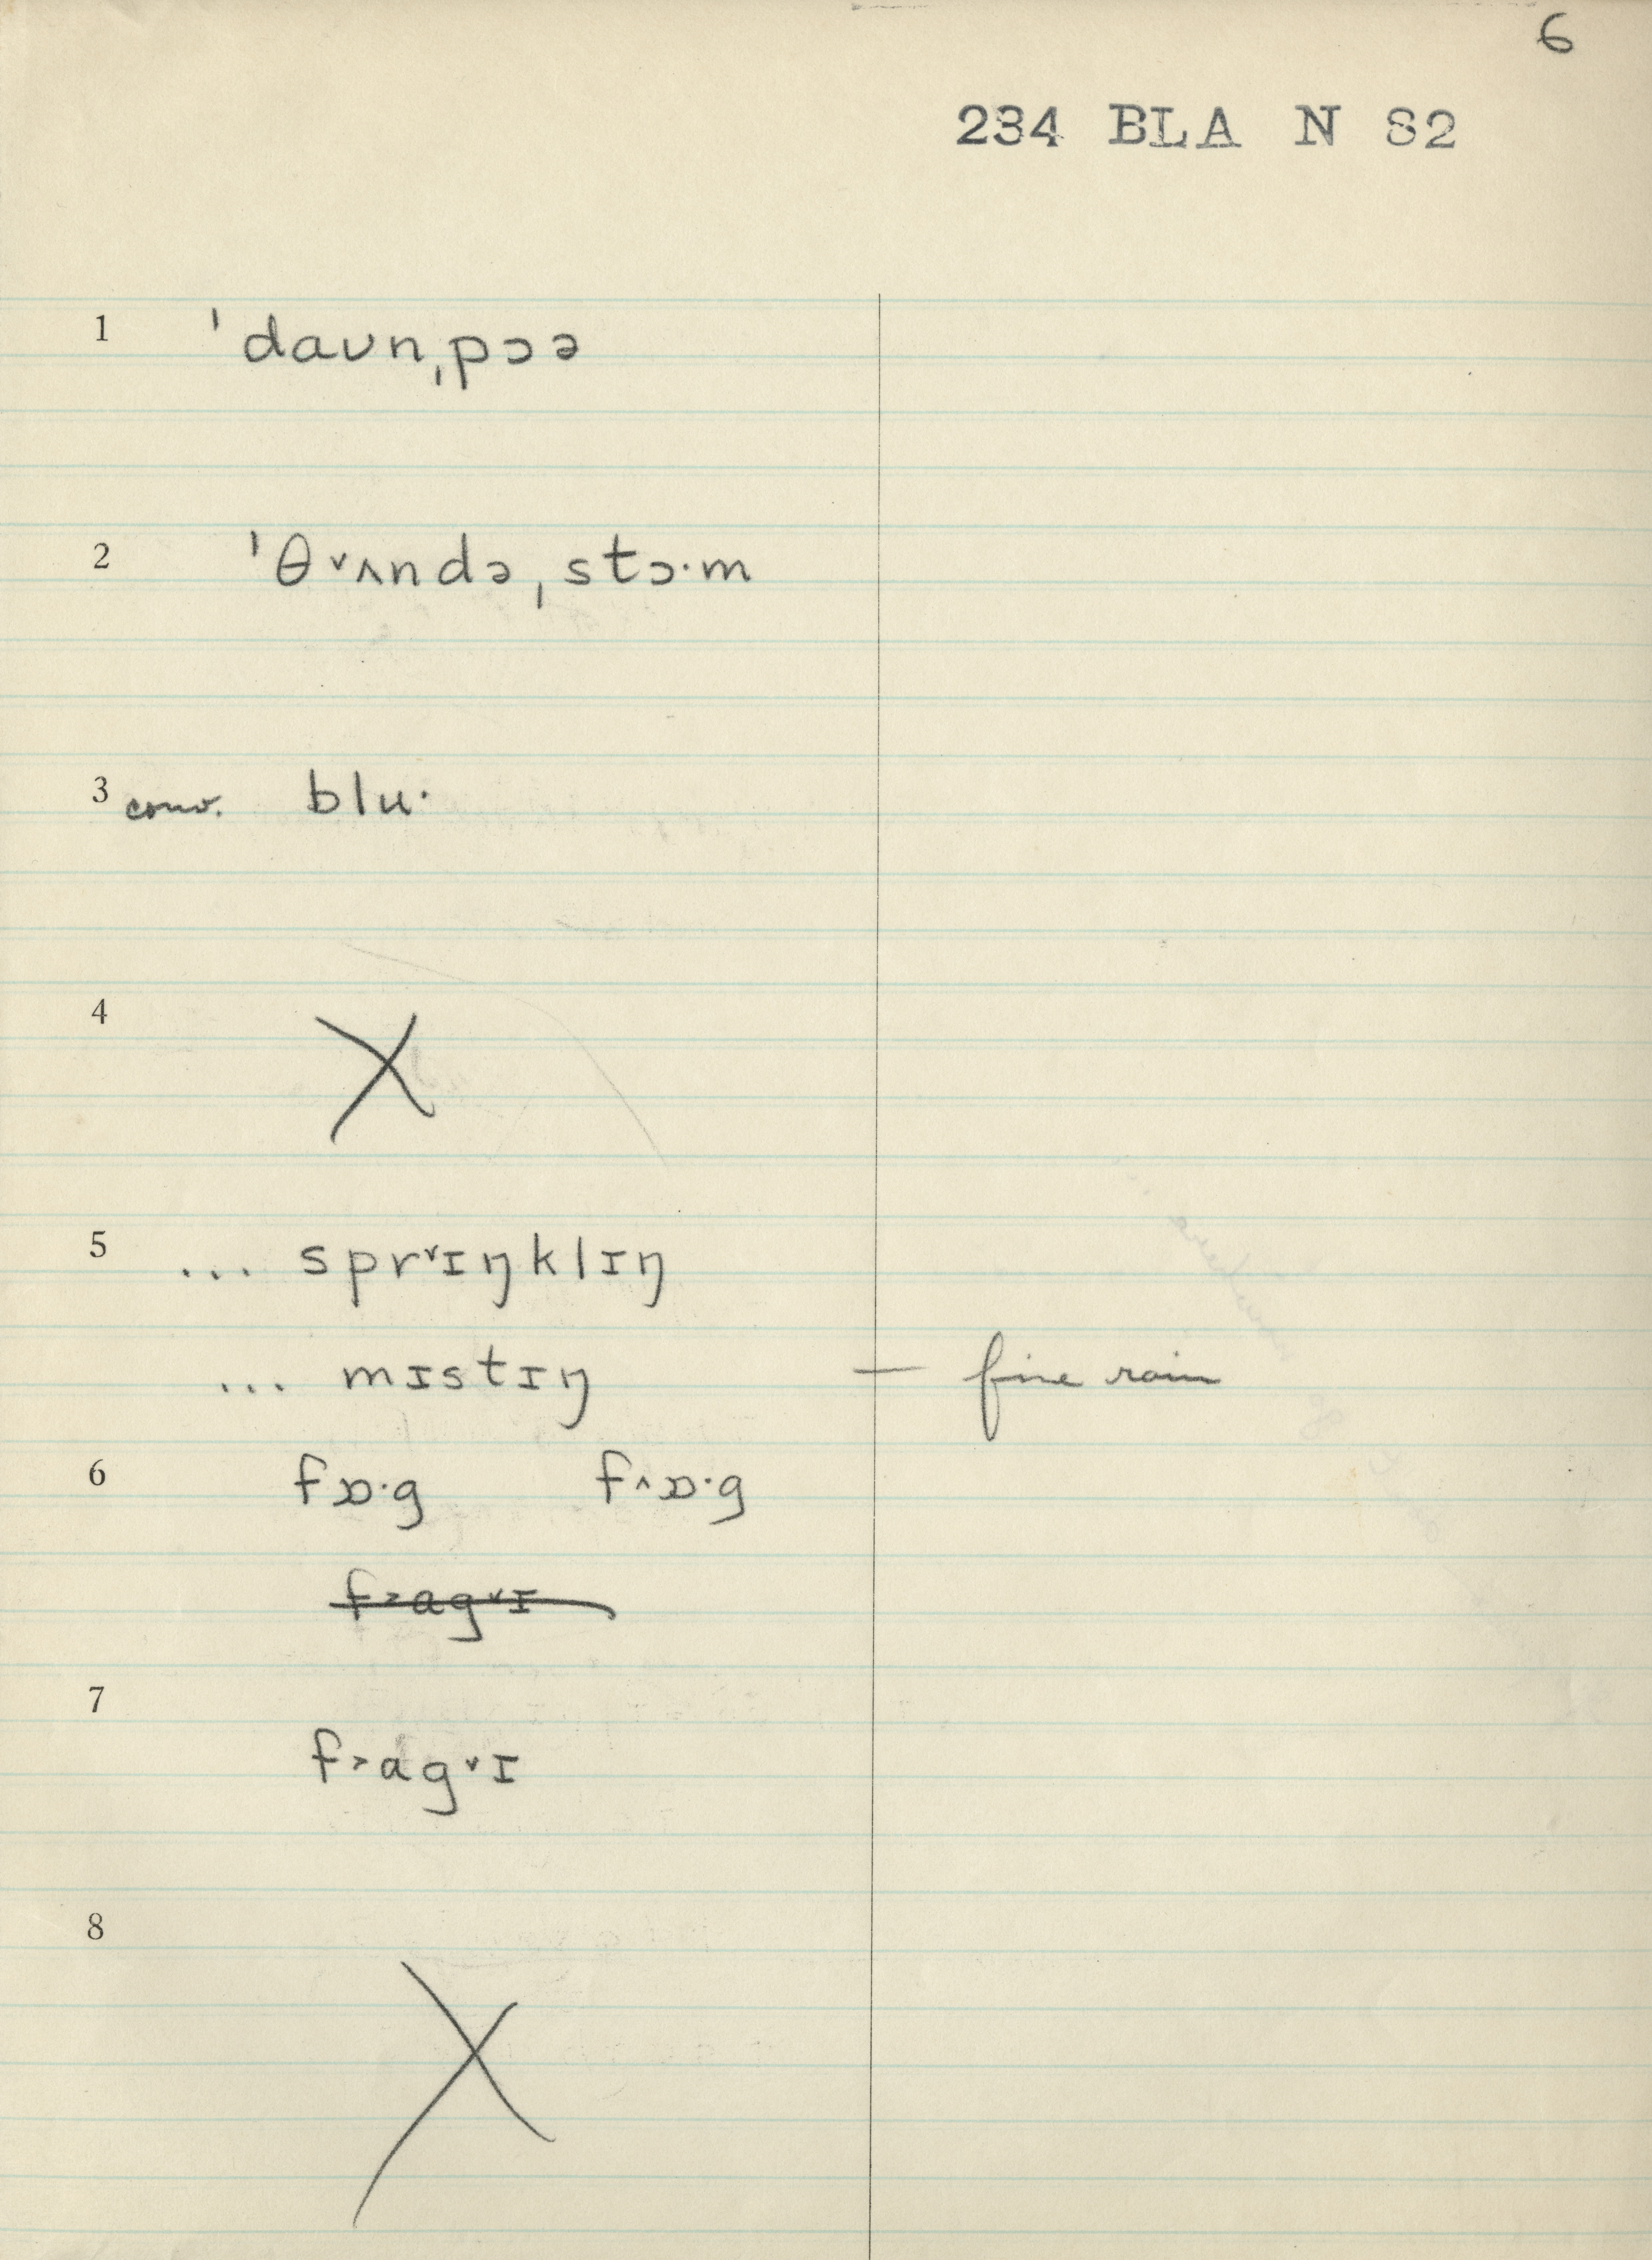 6
234 BLA N 82
1 ˈdaʊnˌpɔə
2 ˈθ˅ʌndəˌstɔ·m
3 conv. blu·
4 X
5 ... spr˅ɪŋklɪŋ
... mɪstɪŋ — fine rain
6 fɒ·g f˄ɒ·g
f˃ag˅ɪ
7 f˃ag˅ɪ
8 X